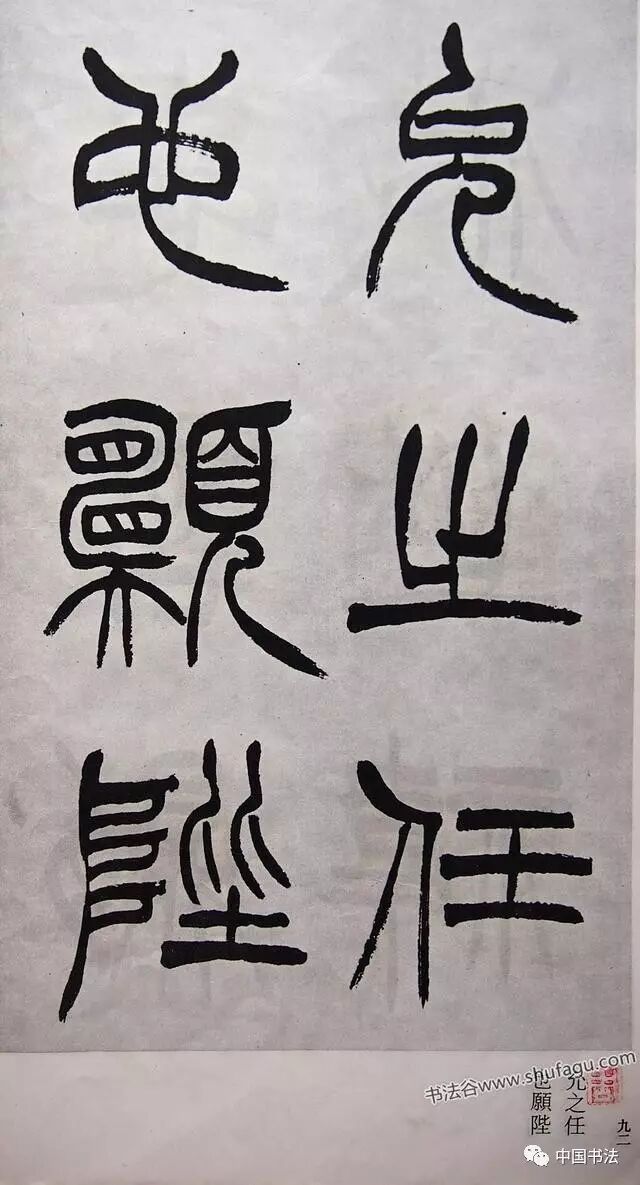 允之任
也願陛
允之任
也願陛
九二
书法谷www.shufagu.com
中国书法